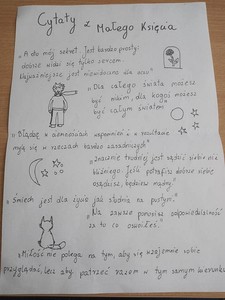 Cytaty z
Małego Księcia
„A oto mój sekret. Jest bardzo prosty:
dobrze widzi się tylko sercem.
Najważniejsze jest niewidoczne dla oczu"
„Dla całego świata możesz
być nikim, dla kogoś możesz
być całym światem"
„Błądzę w
wspomnień i
w rzeczach bardzo zasadniczych"
„Znacznie trudniej jest sądzić siebie niż
bliźniego. Jeśli potrafisz dobrze siebie
osądzić, będziesz mądry"
„Śmiech jest dla życia jak studnia na pustyni"
„Na zawsze ponosisz odpowiedzialność
za to co oswoiłeś."
„Miłość nie polega na tym, aby się wzajemnie sobie
przyglądać, lecz aby patrzeć razem w tym samym kierunku"